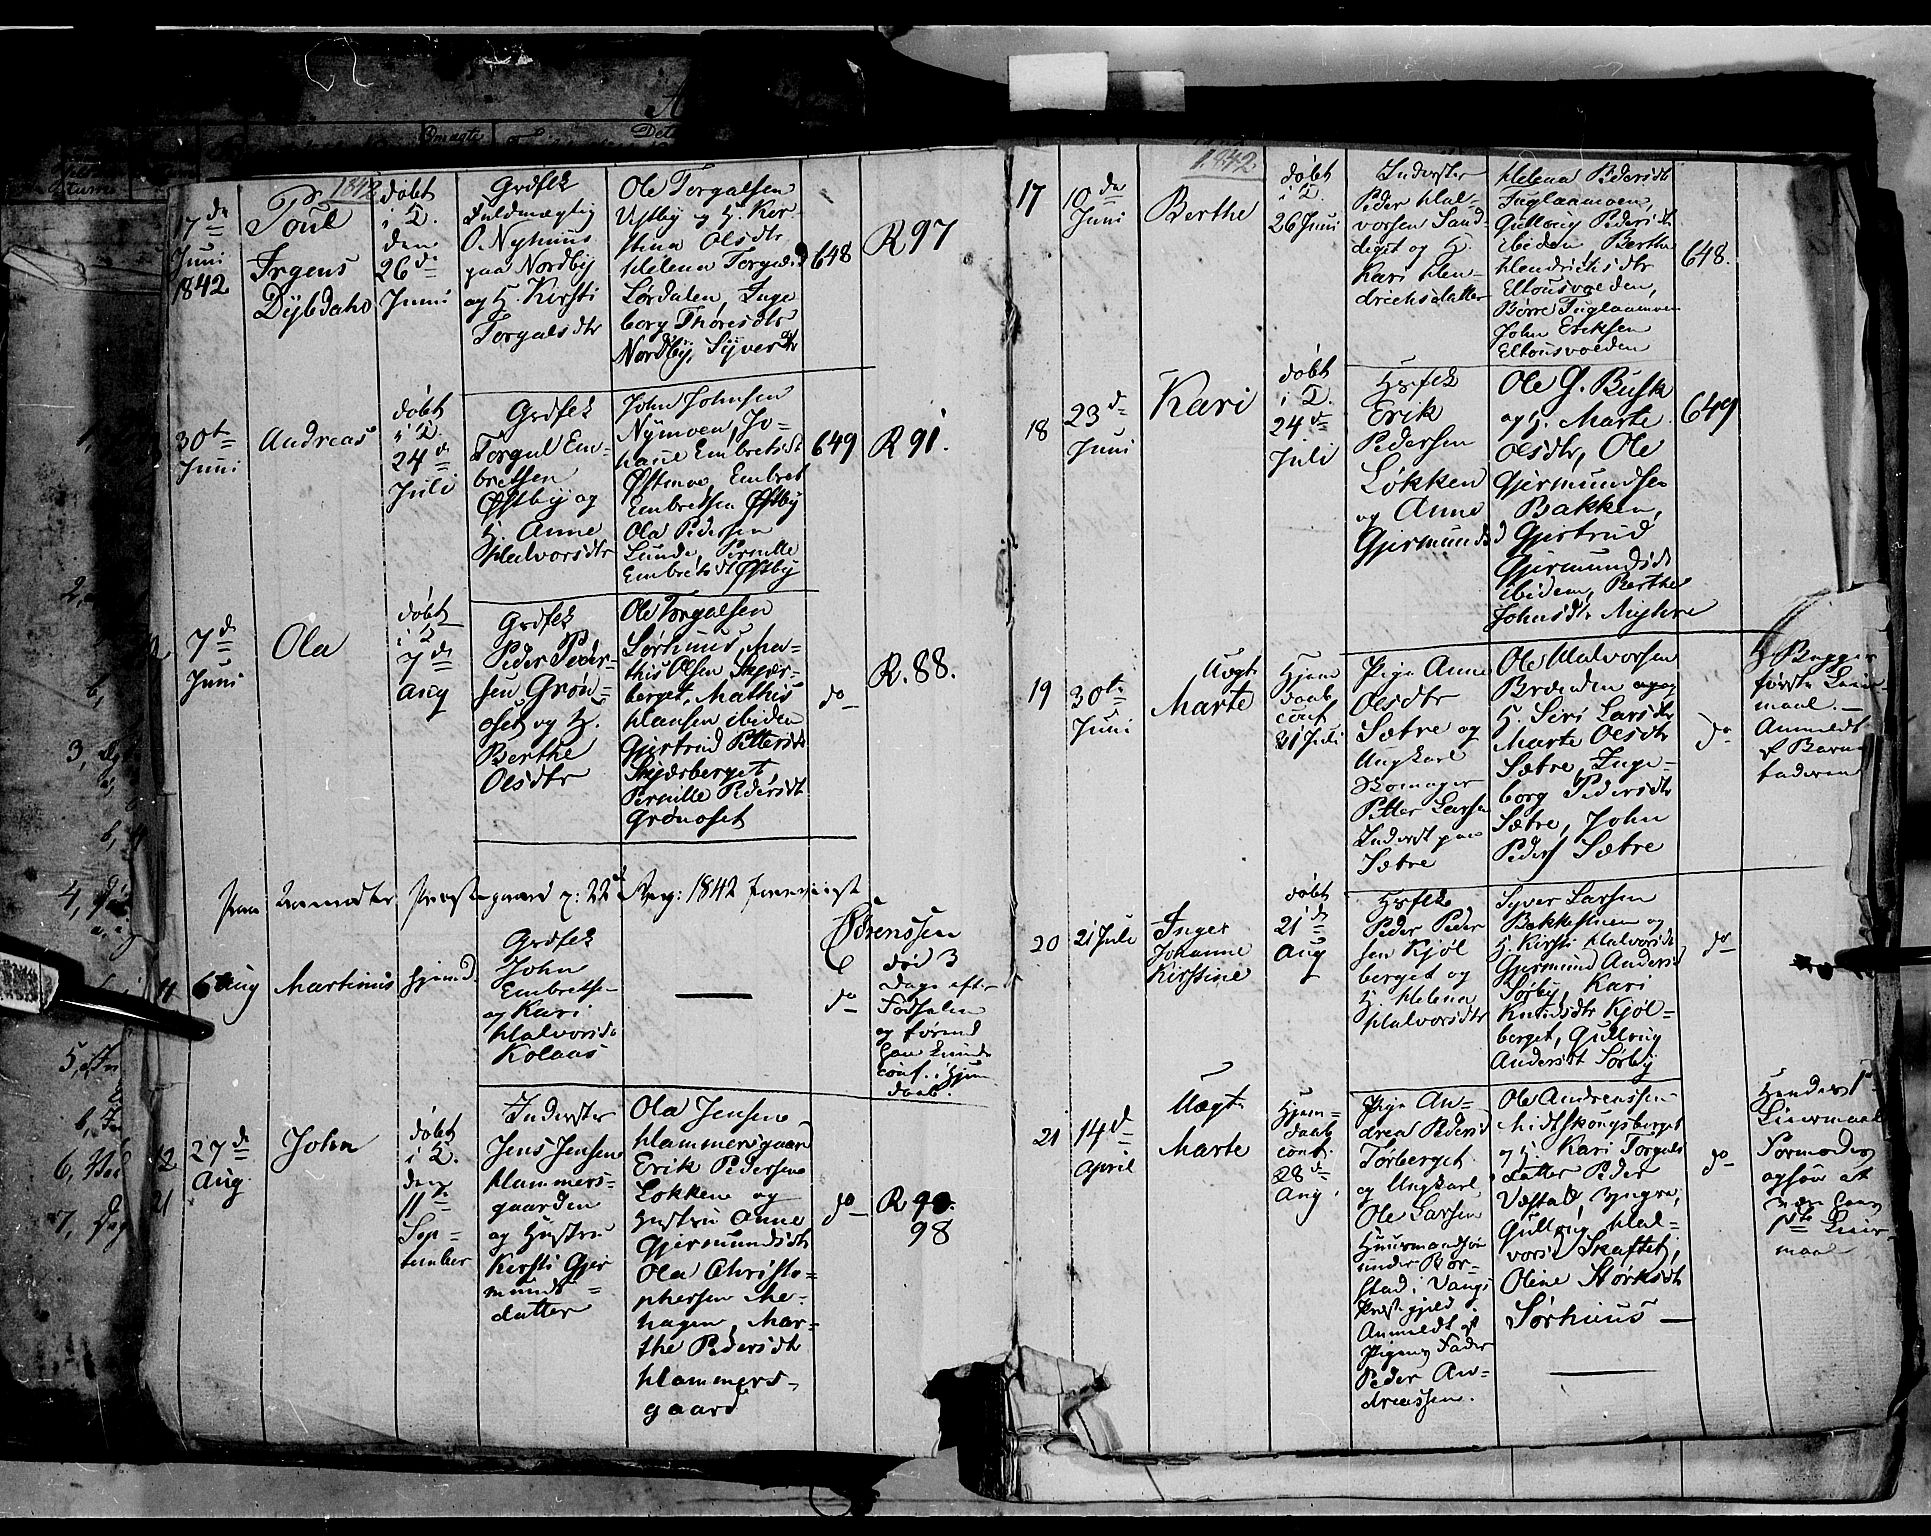 1842
17de
Juni
1842
Poul
Irgens
Dybdahl
døbt
i T.
den
26de
Juni
Grdfek
Fuldmægtig
O. Nyhuus
paa Nordby
og H. Kirsti
Torgalsdtr
Ole Torgalsen
Ustby og H. Ker-
stina Olsdtr
Helena Torgalsd
Lørdalen, Inge
borg Thoresdtr
Nordby, Syver
648
R 97
30te
Juni
Andreas
døbt
i T.
24de
Juli
Grdfek
Torgul Em-
bretsen
Østby og
H. Anne
Halvorsdtr
John Johnsen
Nymoen, Jo-
hane Embretsdt
Østmoe, Embret
Embretsen Østby
Ola Pedersen
Lunde, Pernille
Embretsdt Østby
649
R 91.
7de
Juni
Ola
døbt
i T
7de
Aug
Grdfek
Peder Peder-
sen Grøn-
oset og H.
Berthe
Olsdtr
Ole Torgalsen
Sørhuus, Ma-
this Olsen Skjær-
berget, Mathis
Hansen ibiden
Gjertrud Pettersdt
Skjærberget
Pernille Pedersdt
Grønoset
do
R. 88.
Præstegaard 22de Aug: 1842
Sørenssen
11
6 Aug
Martinus
hjemd
Grdfek
John
Embretse-
og Kari
Halvorsdt
Kolaas
do
død 3
Dage efter
Fødselen
og førend
han kunde
conf. i Hjem
daab.
12
21
27de
Aug.
John
døbt
i T.
den
11te
Sep-
tember
Inderster
Jens Jensen
Hammers-
gaarden
og Hustru
Kirsti Gjer
munds-
datter
Ola Jensen
Hammersgaard
Erik Pedersen
Løkken og
Hustru Anne
Gjermundsdtr
Ola Christo-
phersen Me-
hagen, Mar-
the Pedersdtr
Hammers-
gaard
do
R 90.
98
1842.
17
10de
Juni
Berthe
døbt
i T.
26 Juni
Inderster
Peder Hal-
vorsen Sand-
diget og H.
Kari Hen-
drichsdatter
Helena Pedersdt
Fuglaamoen,
Gullaug Pedersdt
ibiden Berthe
Hendrichsdtr
Eltousvolden,
Børre Fuglaamoen
John Eriksen
Eltousvolden
648.
18
23de
Juni
Kari
døbt
i T.
24de
Juli
Hsfek
Erik
Pedersen
Løkken
og Anne
Gjermundsd
Ole G. Busk
og H. Marte
Olsdtr, Ole
Gjermundsen
Bakken,
Gjertrud
Gjermundsdt
ibidem, Berthe
Johnsdtr Myhre
649
19
30te
Juni
Uægt
Marte
Hjem
daab
conf
31 Juli
Pige Anne
Olsdtr
Sætre og
Ungkarl
Skomager
Petter Larsen
Inderst paa
Sætre
Ole Halvorsen
Brænden og
H. Siri Larsdt
Marte Olsdtr
Sætre, Inge-
borg Pedersdtr
Sætre, John
Peders Sætre
do
Begges
første Leier-
maal. -
Anmeldt
af Barne-
faderen
20
21 Juli
Inger
Johanne
Kirstine
døbt
21de
Aug
Hsfek
Peder Peder
sen Kjøl
berget og
H. Helena
Halvorsdtr
Syver Larsen
Bakkestuen og
H. Kirsti Halvorsdt
Gjermund Anders
Sørby, Kari
Knudsdtr Kjøl-
berget, Gullaug
Andersdt Sørby
do
21
14de
April
Uægt
Marte
Hjem-
daab
conf.
28de
Aug.
Pige An-
drea Pedersd
Tørberget
og Ungkarl
Ole Larsen
Huusmandssøn
under Ror-
stad i Vangs
Præstegjeld.
Anmeldt af
Pigens Fader
Peder An-
dreassen.
Ole Andreassen
Midtskougsberget
og H. Kari Torgals
datter Peder
Væstad Yngre,
Gullaug Hal-
vorsd Skaftet,
Oline Størksdt
Sørhuus
do
Hendes 1ste
Leiermaal
Formodes
ogsaa at
være hans
1ste Leier-
maal